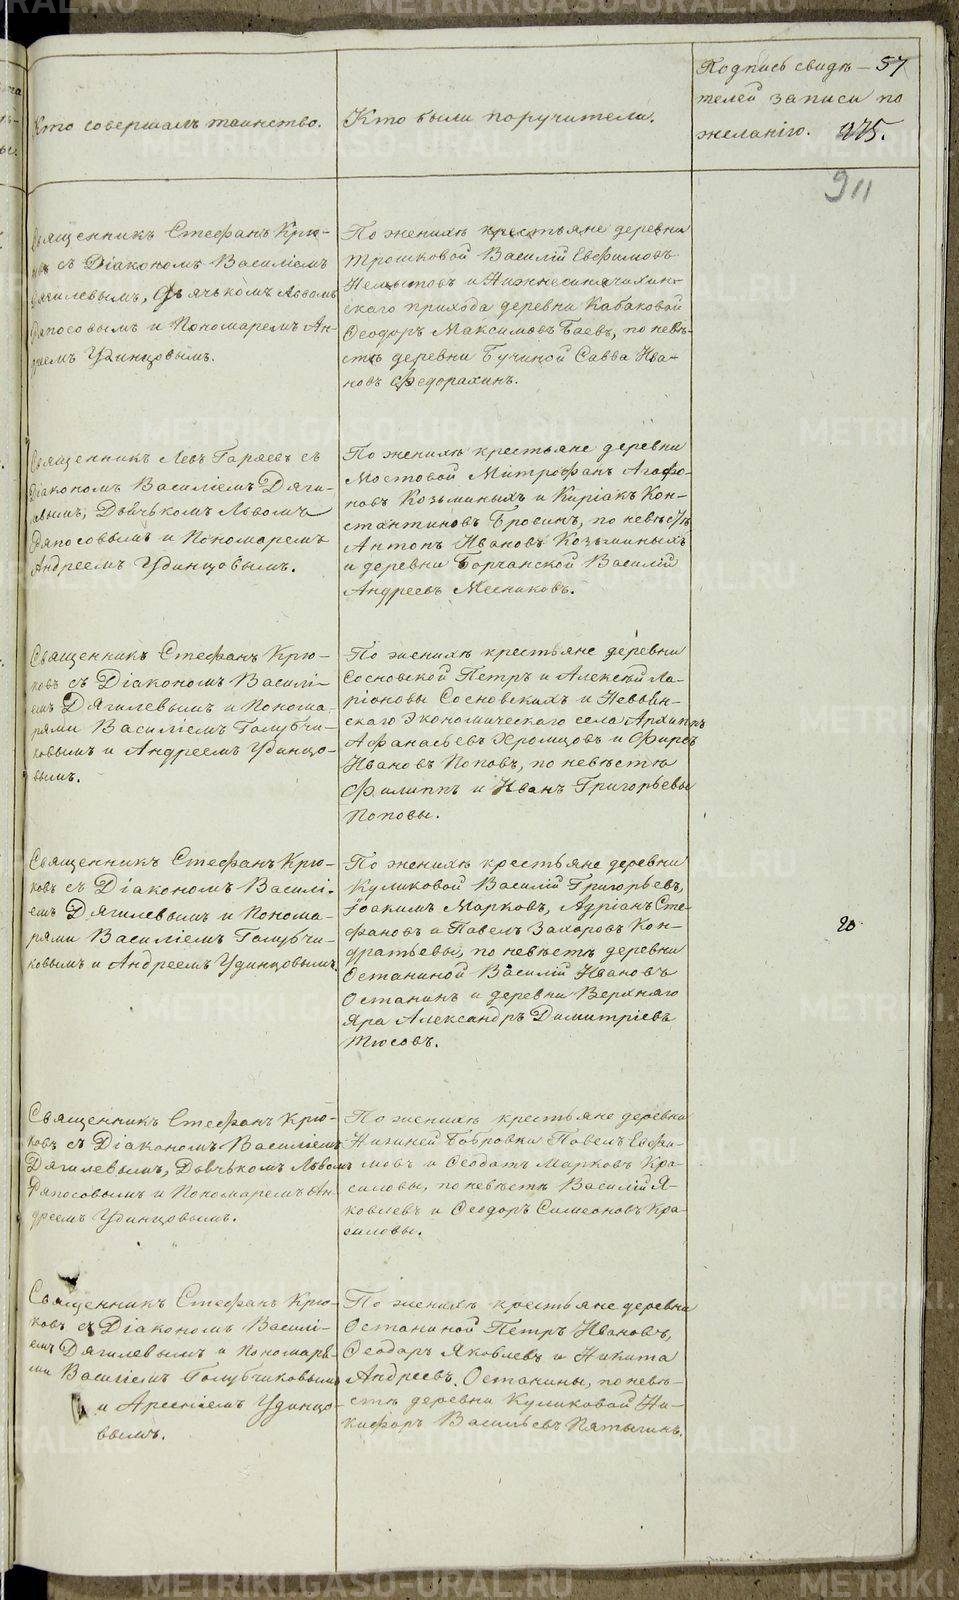 Кто совершалъ таинство.
Кто были поручители.
Подпись свидѣ–
телей записи по
желанію.
57
275.
911
Священникъ Стефанъ Крю-
ковъ съ Діакономъ Василіемъ
Дягилевымъ, Дьячькомъ Львомъ
Ряпосовымъ и Пономаремъ Ан-
дреемъ Удинцовымъ.
По женихѣ крестьяне деревни
Трошковой Василій Евфимовъ
и Нижнесинячихин-
скаго прихода деревни Кабаковой
Ѳеодоръ Максимовъ Баевъ, по невѣ-
стѣ деревни Бучиной Савва Ива-
новъ Федорахинъ.
Священникъ Левъ Гаряевъ съ
Діакономъ Василіемъ Дяги-
левымъ, Дьячькомъ Львомъ
Ряпосовымъ и Пономаремъ
Андреемъ Удинцовымъ.
По женихѣ крестьяне деревни
Мостовой Митрофанъ Агафо-
новъ Козьминыхъ и Киріакъ Кон-
стантиновъ Бросинъ, по невѣстѣ
Антонъ Ивановъ Козьминыхъ
и деревни Борчанской Василій
Андреевъ Мясниковъ.
Священникъ Стефанъ Крю-
ковъ съ Діакономъ Василі-
емъ Дягилевымъ и Понома-
рями Василіемъ Голубчи-
ковымъ и Андреемъ Удинцо-
вымъ.
По женихѣ крестьяне деревни
Сосновской Петръ и Алексѣй Ла-
ріоновы Сосновскихъ и Невьян-
скаго Экономическаго села Архиппъ
Афанасьевъ Хромцовъ и Фирсъ
Ивановъ Поповъ, по невѣстѣ
Филиппъ и Иванъ Григорьевы
Поповы.
Священникъ Стефанъ Крю-
ковъ съ Діакономъ Василі-
емъ Дягилевымъ и Понома-
рями Василіемъ Голубчи-
ковымъ и Андреемъ Удинцовымъ.
По женихѣ крестьяне деревни
Куликовой Василій Григорьевъ,
Іоакимъ Марковъ, Адріанъ Сте-
фановъ и Павелъ Захаровъ Кон-
дратьевы, по невѣстѣ деревни
Останиной Василій Ивановъ
Останинъ и деревни Верхняго
Яра Александръ Димитріевъ
Тюсовъ.
20
Священникъ Стефанъ Крю-
ковъ съ Діакономъ Василіемъ
Дягилевымъ, Дьячькомъ Львомъ
Ряпосовымъ и Пономаремъ Ан-
дреемъ Удинцовымъ.
По женихѣ крестьяне деревни
Нижней Бобровки Павелъ Евфи-
мовъ и Ѳеодотъ Марковъ Кра-
силовы, по невѣстѣ Василій Я-
ковлевъ и Ѳеодоръ Симеоновъ Кра-
силовы.
Священникъ Стефанъ Крю-
ковъ съ Діакономъ Василі-
емъ Дягилевымъ и Пономаря-
ми Василіемъ Голубчиковымъ
и Арсеніемъ Удинцо-
вымъ.
По женихѣ крестьяне деревни
Останиной Петръ Ивановъ,
Ѳеодоръ Яковлевъ и Никита
Андреевъ Останины, по невѣ-
стѣ деревни Куликовой Ни-
кифоръ Васильевъ Пятыгинъ.
METRIKI.GASO-URAL.RU